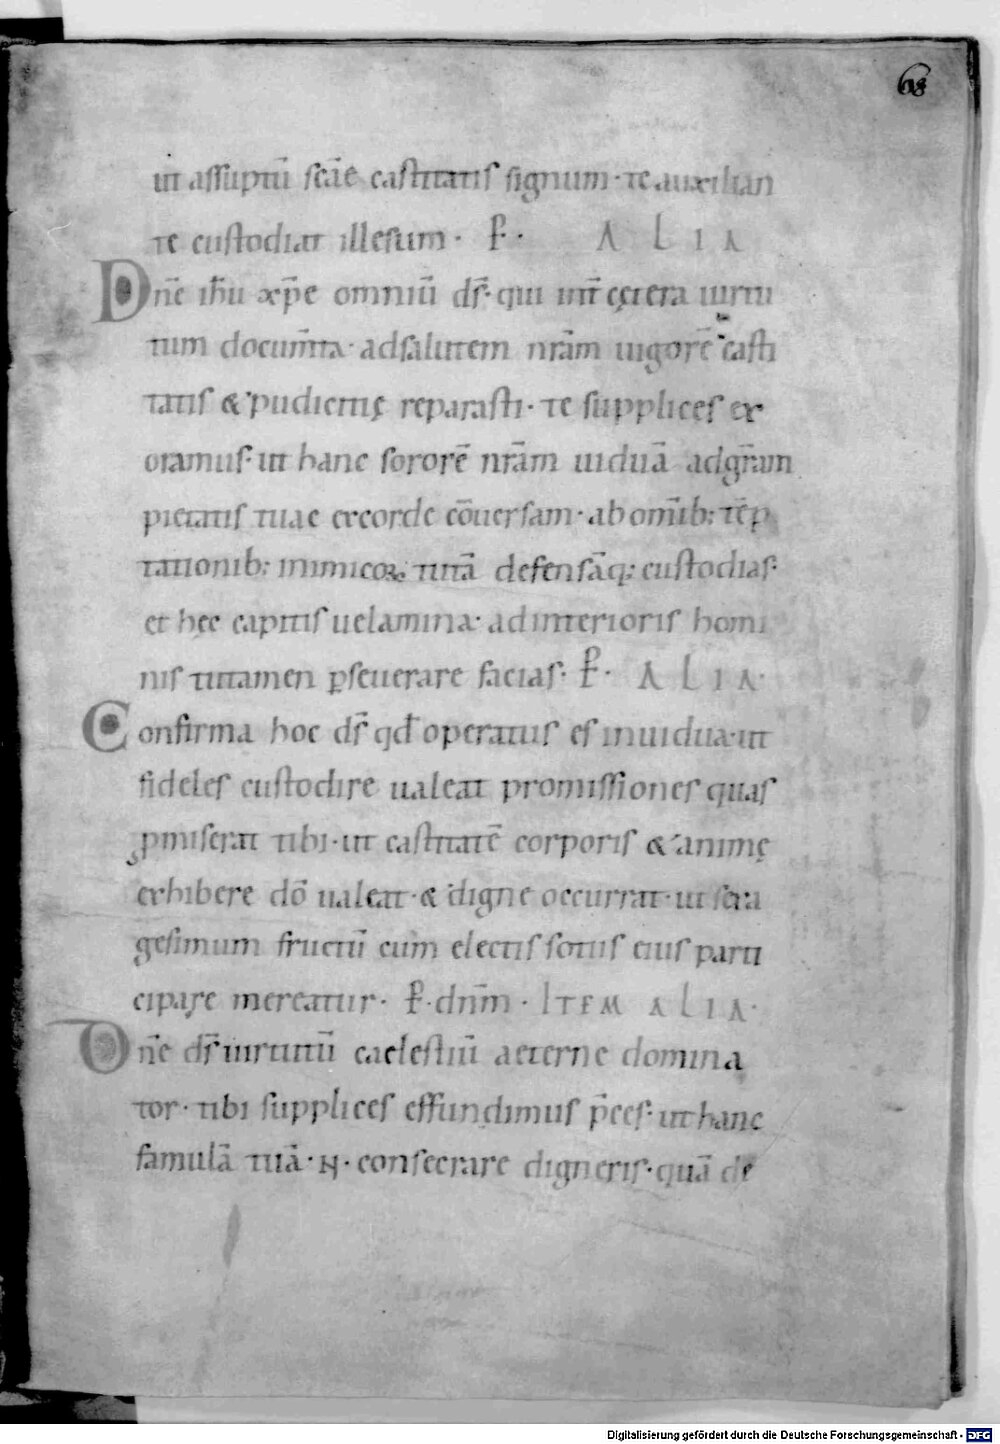 68
ut assuptū scāe castitatis signum· te auxilian
te custodiat illesum· P̄· ALIA
Dn̄e ih̄u xp̄e omniū ds̄· qui int̄ cętera uirtu
tum docum̄ta· adsalutem nr̄am uigorē casti
tatis & pudicitię reparasti· te supplices ex
oramus· ut hanc sororē nr̄am uiduā adgr̄am
pietatis tuae excorde cōuersam· ab om̄ib: tēp
tationib: inimicoꝝ tutā defensāq; custodias·
et hęc capitis uelamina· adinterioris homi
nis tutamen ꝑseuerare facias· P̄· ALIA·
Confirma hoc ds̄ qd̄ operatus es inuidua· ut
fideles custodire ualeat promissiones quas
ꝓmiserat tibi· ut castitatē corporis & animę
exhibere dō ualeat· & digne occurrat· ut sexa
gesimum fructū cum electis sotiis eius parti
cipare mereatur· P̄· dn̄m· ITEM ALIA·
Dn̄e ds̄ uirtutū caelestiū aeterne domina
tor· tibi supplices effundimus p̄ces· ut hanc
famulā tuā· N· consecrare digneris· quā de
Digitalisierung gefördert durch die Deutsche Forschungsgemeinschaft - DFG